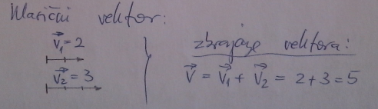 Klasični vektor:
v⃗₁ = 2
v⃗₂ = 3
zbrajanje vektora:
v⃗ = v⃗₁ + v⃗₂ = 2+3=5